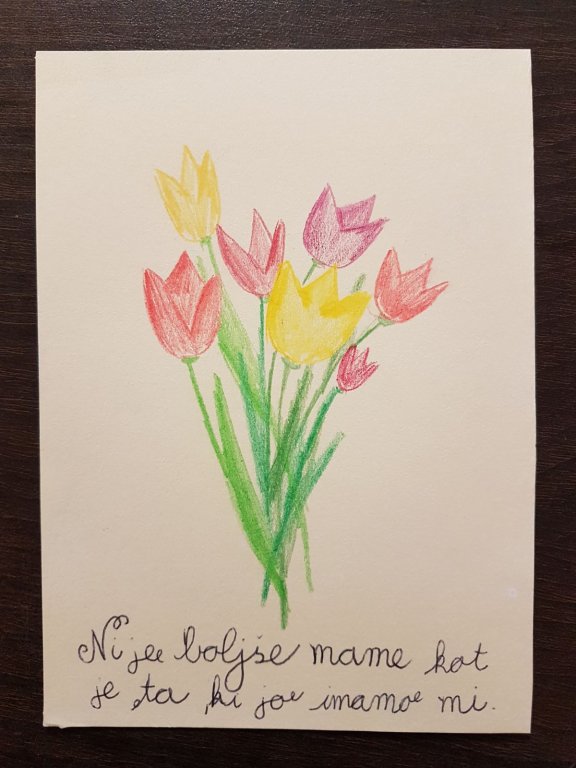 Ni je boljše mame kot
je ta ki jo imamo mi.